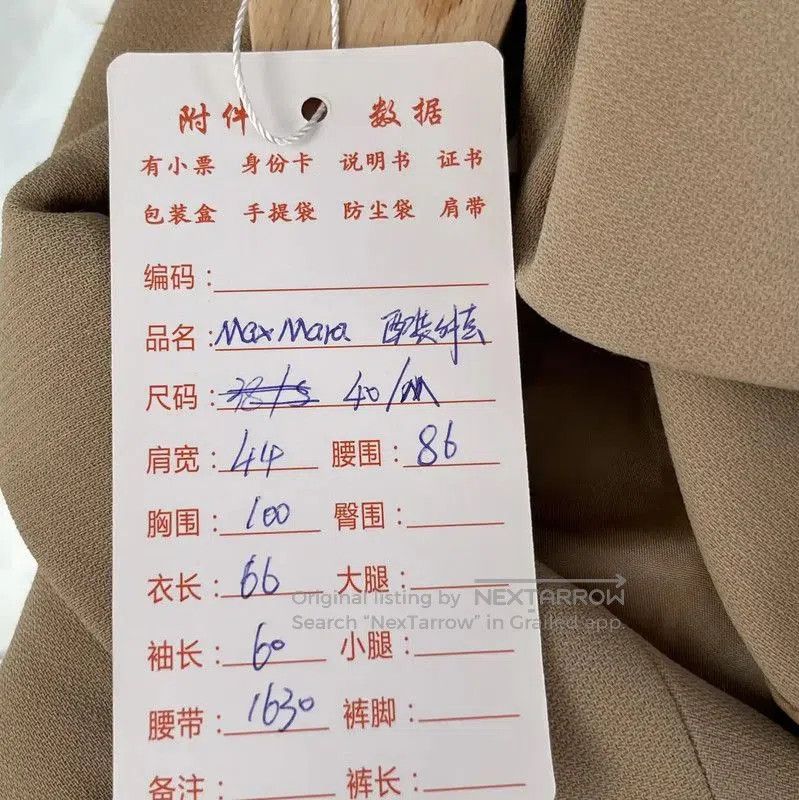 附件 数据
有小票 身份卡 说明书 证书
包装盒 手提袋 防尘袋 肩带
编码：
品名：MaxMara 西装外套
尺码：38/S 40/M
肩宽：44 腰围：86
胸围：100 臀围：
衣长：66 大腿：
袖长：60 小腿：
腰带：1630 裤脚：
备注： 裤长：
Original listing by NEXTARROW
Search "NexTarrow" in Grailed app.